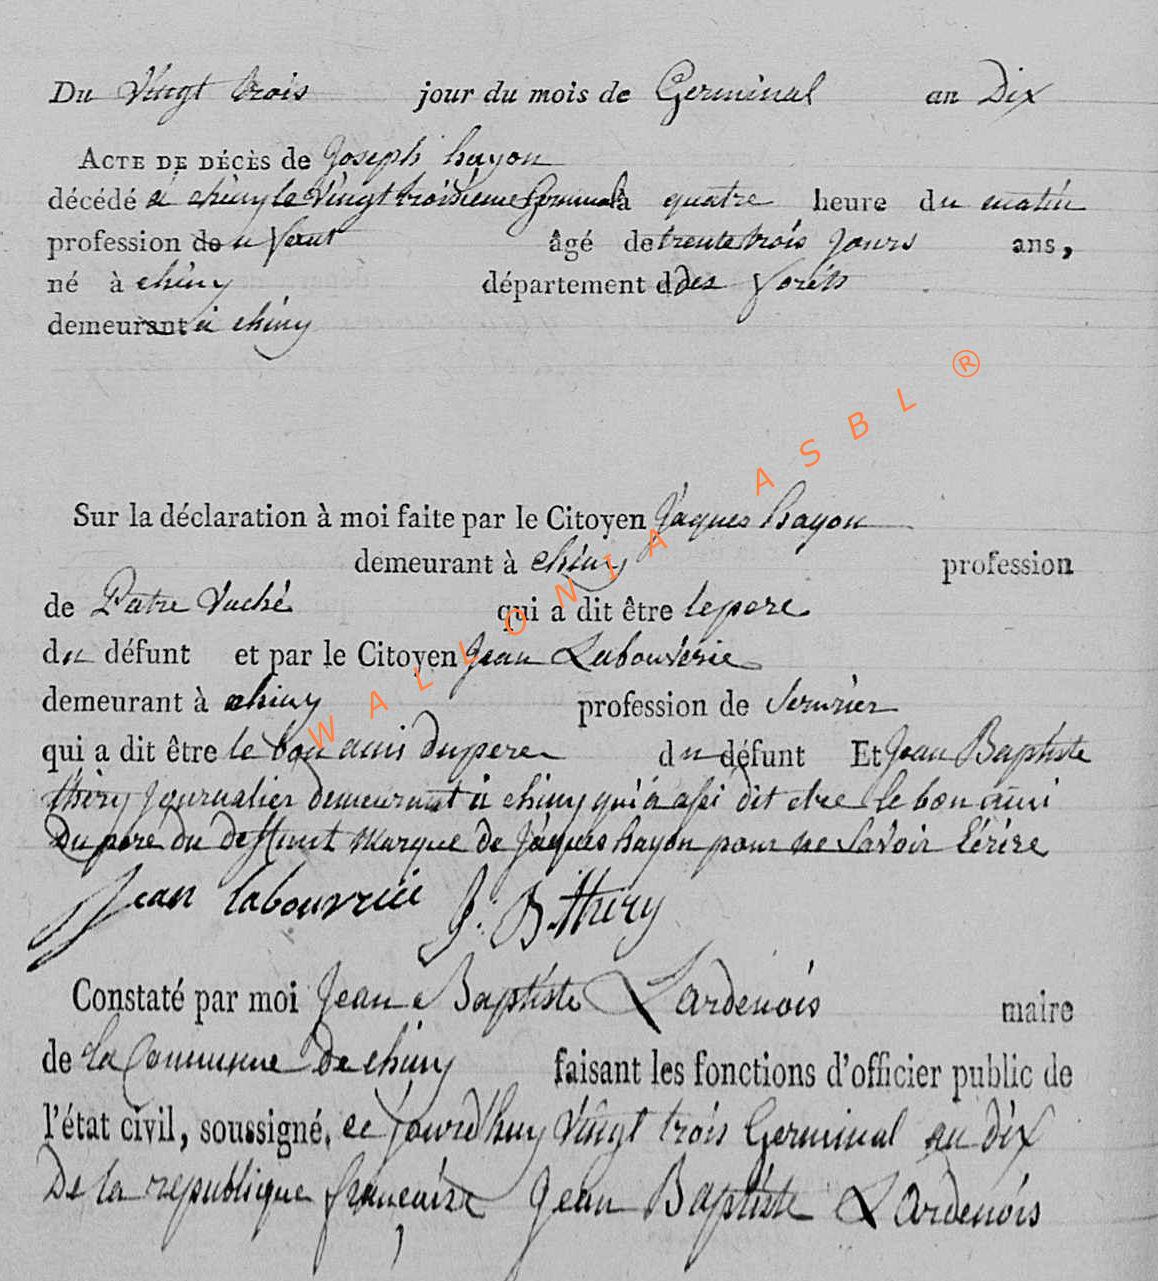 Du Vingt trois jour du mois de Germinal an Dix
ACTE DE DÉCÈS de Joseph hayon
décédé à chiny le Vingt troisieme Germinal à quatre heure du matin
profession de âgé de trente trois jours ans,
né à chiny département ddes Foréts
demeurant à chiny
Sur la déclaration à moi faite par le Citoyen Jaques hayon
demeurant à chiny profession
de Patre Vaché qui a dit être le pere
du défunt et par le Citoyen Jean Labouverie
demeurant à chiny profession de Serurier
qui a dit être le bon ami du pere du défunt Et Jean Baptiste
thiry Journalier demeurant à chiny qui a assi dit etre le bon ami
Du pere du deffunt marque de Jaques hayon pour ne Savoir Ecrire
Jean labouvrie J. B. thiry
Constaté par moi Jean Baptiste Lardenois maire
de la Commune De chiny faisant les fonctions d'officier public de
l'état civil, soussigné, ce jourd'huy Vingt trois Germinal an dix
De la republique francaise Jean Baptiste Lardenois
WALLONIA ASBL ®